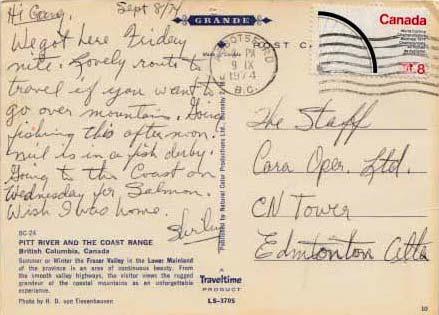 Hi Gang, Sept 8/74
We got here Friday
nite. Lovely route to
travel if you want to
go over mountains. Going
fishing this afternoon.
Neil is in a fish derby.
Going to the Coast on
Wednesday for Salmon.
Wish I was home.
Shirley
BC-24
PITT RIVER AND THE COAST RANGE
British Columbia, Canada
Summer or Winter the Fraser Valley in the Lower Mainland
of the province is an area of continuous beauty. From
the smooth valley highways, the visitor views the rugged
grandeur of the coastal mountains as an unforgettable
experience.
Photo by H. D. von Tiesenhausen
GRANDE
POST C
Published by Natural Color Productions Ltd., Burnaby 2, B.C.
A
Traveltime
PRODUCT
LS-3705
ABBOTSFORD
PM
9 IX
1974
B.C.
Canada
8
The Staff
Cara Oper. Ltd.
CN Tower
Edmonton Alta
10